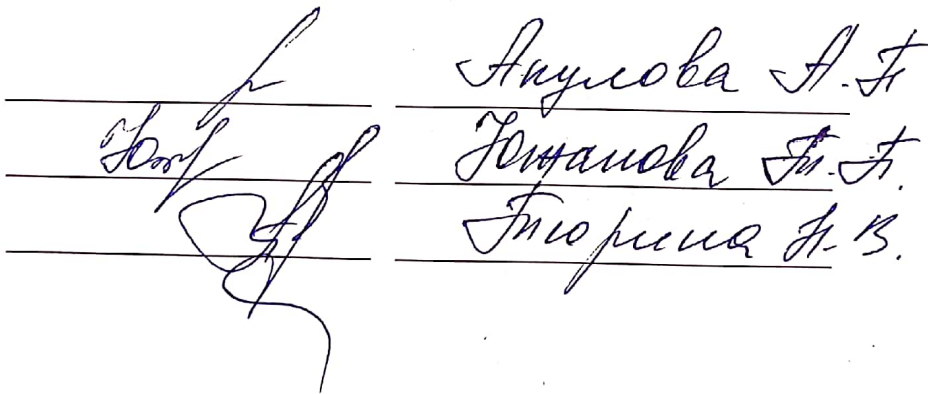 Акулова А.П
Южанова Т.П.
Тюрина Н.В.